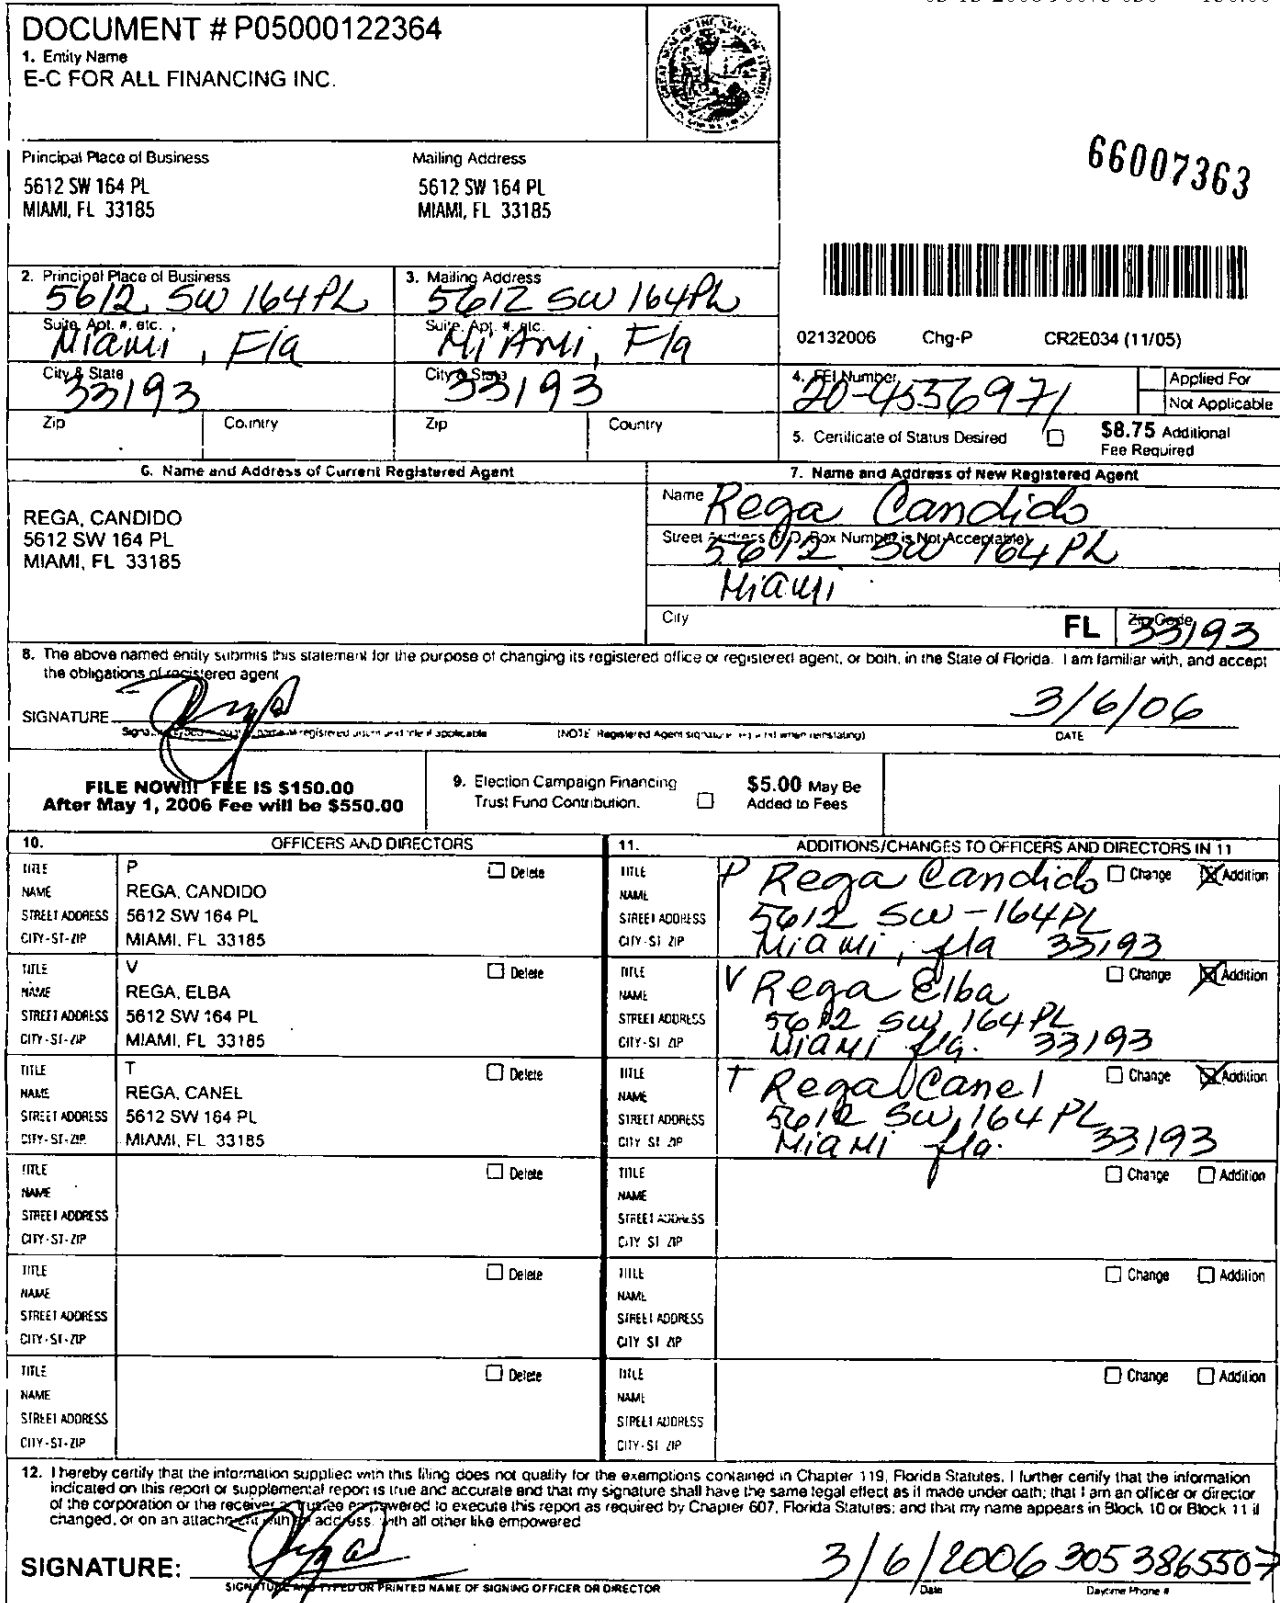 DOCUMENT # P05000122364
1. Entity Name
E-C FOR ALL FINANCING INC.
Principal Place of Business
5612 SW 164 PL
MIAMI, FL 33185
Mailing Address
5612 SW 164 PL
MIAMI, FL 33185
66007363
2. Principal Place of Business
5612 SW 164 PL
Suite, Apt. #, etc.
Miami, Fla
City & State
33193
Zip Country
3. Mailing Address
5612 SW 164 PL
Suite, Apt. #, etc.
Miami, Fla
City & State
33193
Zip Country
02132006 Chg-P CR2E034 (11/05)
4. FEI Number
20-4536971
Applied For
Not Applicable
5. Certificate of Status Desired
$8.75 Additional
Fee Required
6. Name and Address of Current Registered Agent
REGA, CANDIDO
5612 SW 164 PL
MIAMI, FL 33185
7. Name and Address of New Registered Agent
Name Rega Candido
Street Address (P.O. Box Number is Not Acceptable)
5612 SW 164 PL
Miami
City FL Zip Code
33193
8. The above named entity submits this statement for the purpose of changing its registered office or registered agent, or both, in the State of Florida. I am familiar with, and accept
the obligations of registered agent
SIGNATURE 3/6/06
registered agent and title if applicable (NOTE: Registered Agent signature required when reinstating) DATE
FILE NOW!!! FEE IS $150.00
After May 1, 2006 Fee will be $550.00
9. Election Campaign Financing
Trust Fund Contribution.
$5.00 May Be
Added to Fees
10. OFFICERS AND DIRECTORS
TITLE P Delete
NAME REGA, CANDIDO
STREET ADDRESS 5612 SW 164 PL
CITY-ST-ZIP MIAMI, FL 33185
TITLE V Delete
NAME REGA, ELBA
STREET ADDRESS 5612 SW 164 PL
CITY-ST-ZIP MIAMI, FL 33185
TITLE T Delete
NAME REGA, CANEL
STREET ADDRESS 5612 SW 164 PL
CITY-ST-ZIP MIAMI, FL 33185
TITLE Delete
NAME
STREET ADDRESS
CITY-ST-ZIP
TITLE Delete
NAME
STREET ADDRESS
CITY-ST-ZIP
TITLE Delete
NAME
STREET ADDRESS
CITY-ST-ZIP
11. ADDITIONS/CHANGES TO OFFICERS AND DIRECTORS IN 11
TITLE P Rega Candido Change Addition
NAME
STREET ADDRESS 5612 SW-164 PL
CITY-ST-ZIP Miami, fla 33193
TITLE V Rega Elba Change Addition
NAME
STREET ADDRESS 5612 SW 164 PL
CITY-ST-ZIP Miami fla. 33193
TITLE T Rega Canel Change Addition
NAME
STREET ADDRESS 5612 SW 164 PL
CITY-ST-ZIP Miami fla. 33193
TITLE Change Addition
NAME
STREET ADDRESS
CITY-ST-ZIP
TITLE Change Addition
NAME
STREET ADDRESS
CITY-ST-ZIP
TITLE Change Addition
NAME
STREET ADDRESS
CITY-ST-ZIP
12. I hereby certify that the information supplied with this filing does not qualify for the exemptions contained in Chapter 119, Florida Statutes. I further certify that the information
indicated on this report or supplemental report is true and accurate and that my signature shall have the same legal effect as if made under oath; that I am an officer or director
of the corporation or the receiver or trustee empowered to execute this report as required by Chapter 607, Florida Statutes; and that my name appears in Block 10 or Block 11 if
changed, or on an attachment with an address, with all other like empowered
SIGNATURE: 3/6/2006 305 3865507
SIGNATURE AND TYPED OR PRINTED NAME OF SIGNING OFFICER OR DIRECTOR Date Daytime Phone #